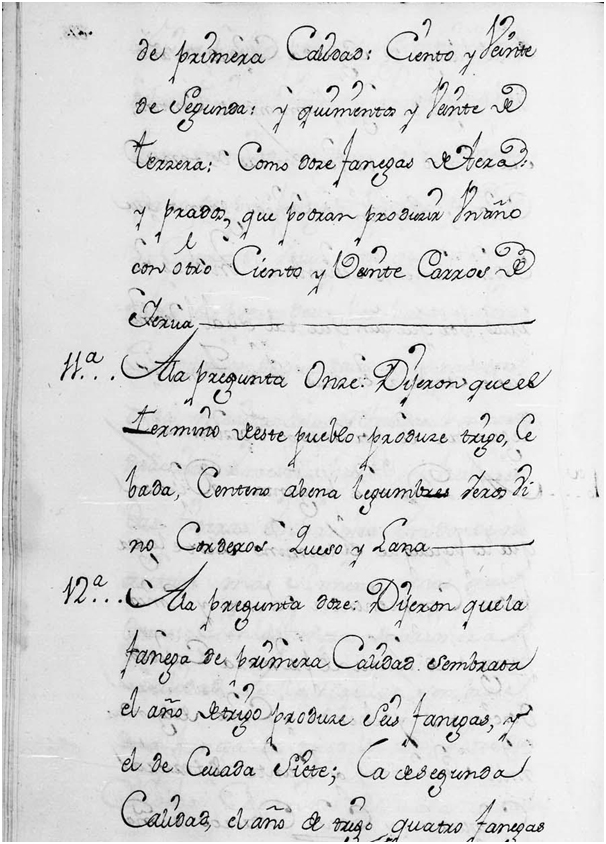 de primera Calidad: Ciento y Veinte
de Segunda: y quinientos y Vente de
terzera: Como doze fanegas de
y prados, que podran produzir Un año
con otro Ciento y Vente Carros de
Yerua
11ª... Ala pregunta Onze: Dijeron que el
termino deste pueblo produze trigo, Ce
bada, Centeno abena legumbres Yeros di
no, Corderos Queso y Lana
12ª... Ala pregunta doze: Dijeron que la
fanega de primera Calidad sembrada
el año de trigo produze Seis fanegas, y
el de Ceuada Siete; La de segunda
Calidad, el año de trigo quatro fanegas